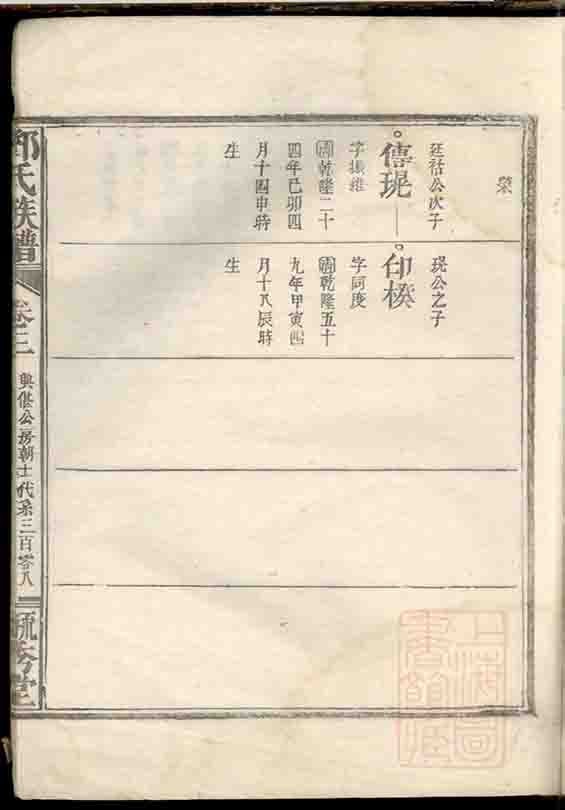 榮
廷祜公次子
傳琨
字振維
清乾隆二十
四年己卯四
月十四申時
生
琨公之子
印楑
字同度
清乾隆五十
九年甲寅四
月十八辰時
生
氏族譜
卷三
興偡公房朝士代系三百零八
秀堂
上海圖
書館藏